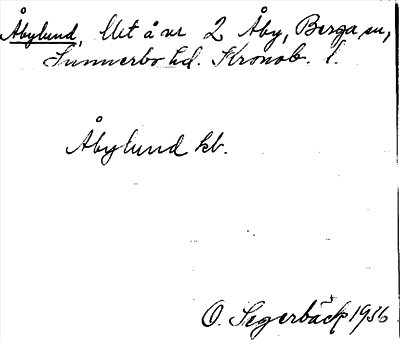 Åbylund, Utt å nr 2 Åby, Berga sn,
Sunnerbo hd. Kronob. l.
Åbylund kb.
O. Segerbäck 1936